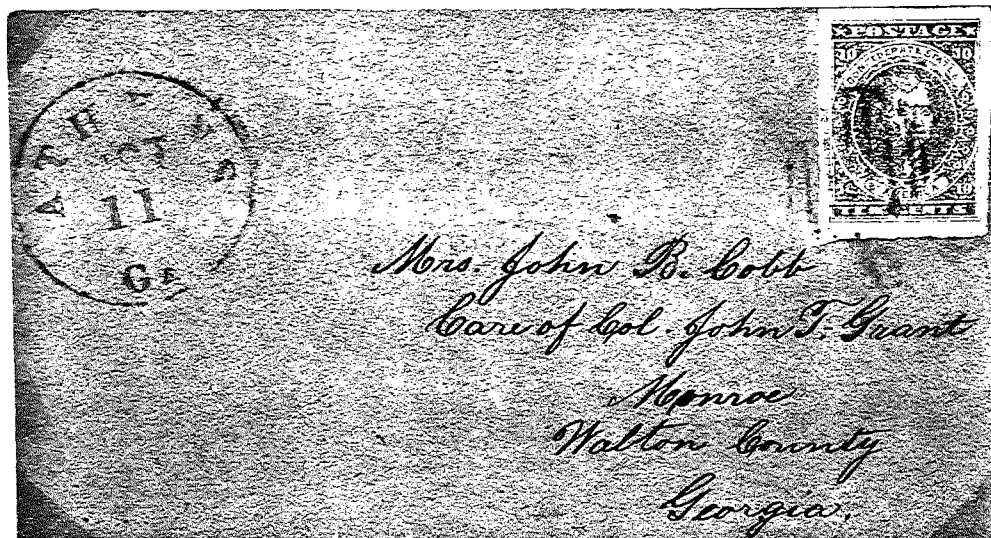 ATHENS
OCT
11
GA
POSTAGE
10 10
10
TEN CENTS
Mrs. John B. Cobb
Care of Col. John T. Grant
Monroe
Walton County
Georgia.